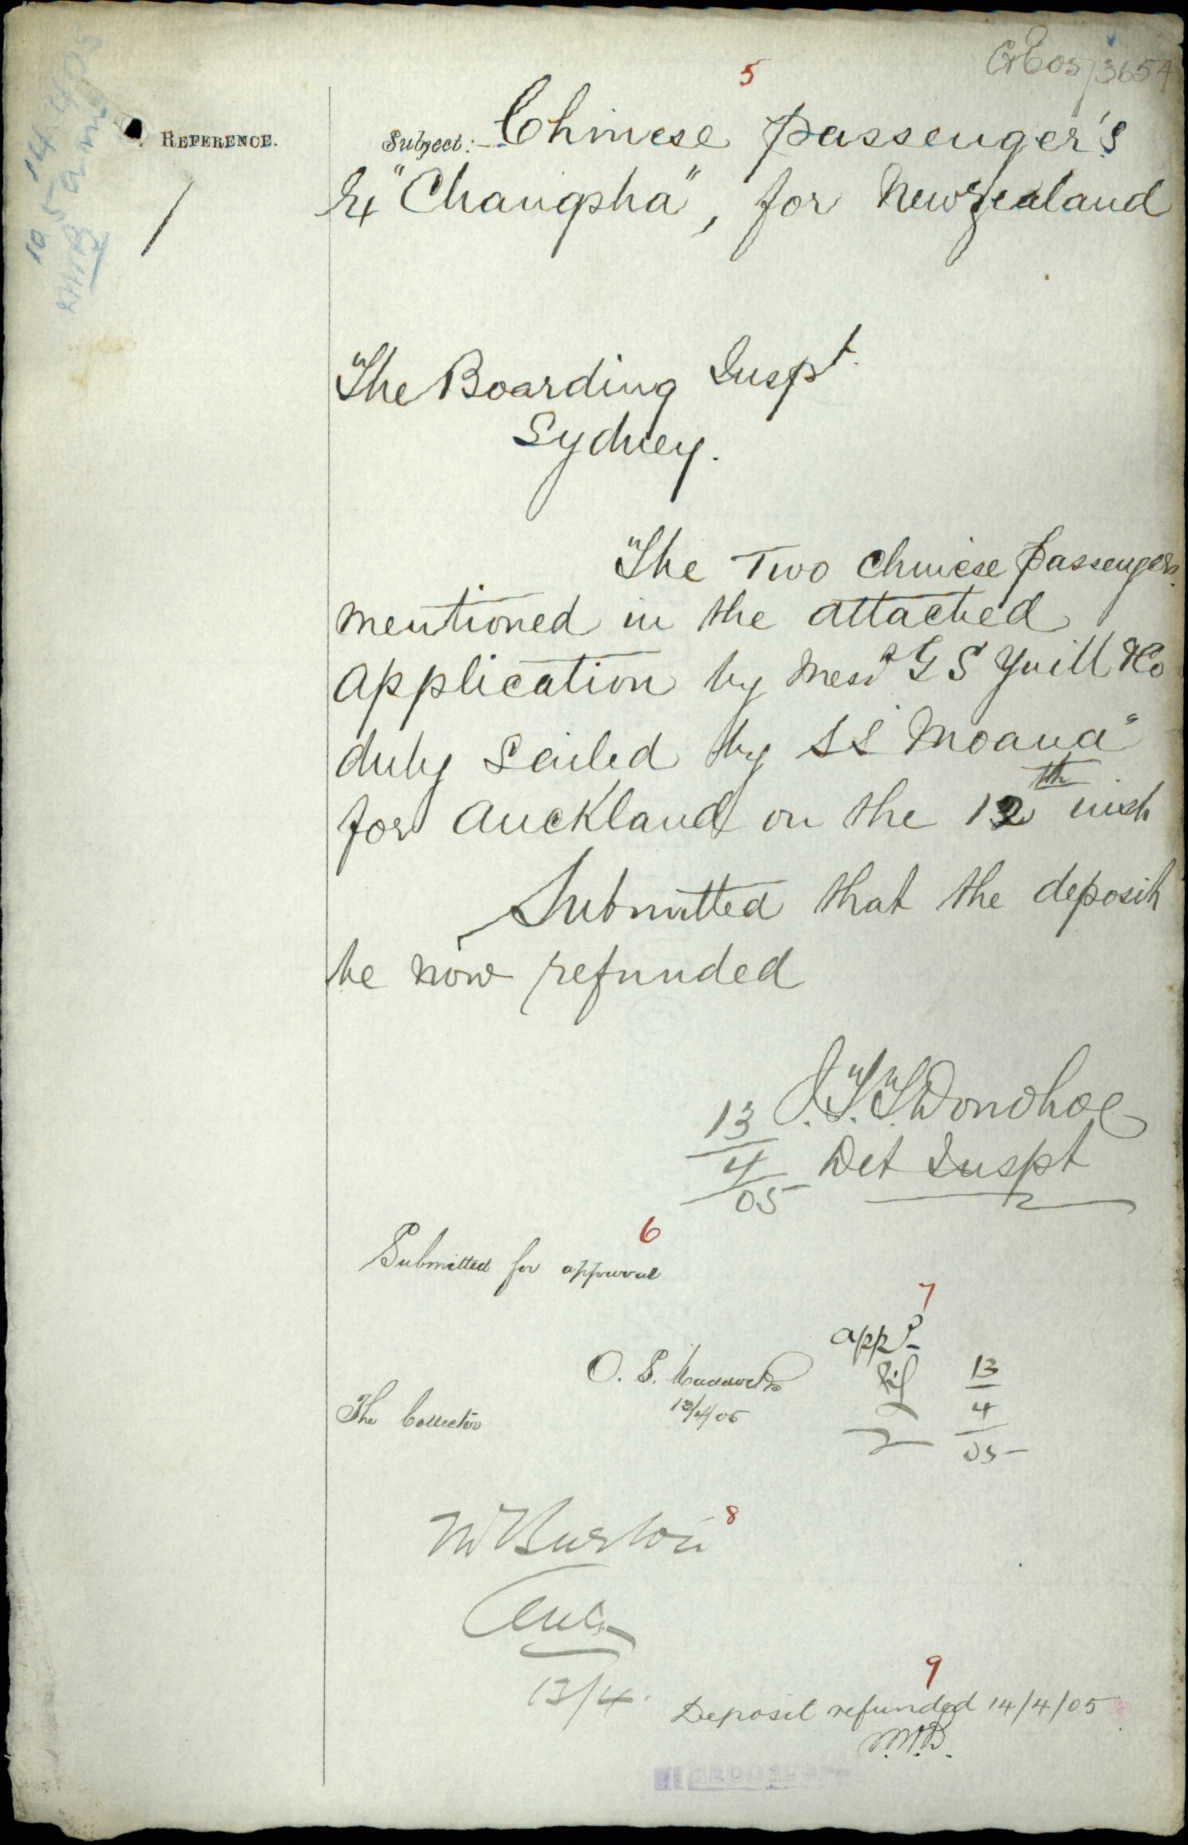 C&E 05/3654
5
REFERENCE.
Subject:— Chinese passenger's
Ex "Changsha", for New Zealand
The Boarding Inspt.
Sydney.
The Two Chinese passengers
mentioned in the attached
application by Messrs G S Yuill & Co
duly sailed by SS "Moana"
for Auckland on the 12th inst
Submitted that the deposit
be now refunded
J.T.T. Donohoe
Det Inspt
13/4/05
6
Submitted for approval
7
appd
13/4/05
O. S. Maddocks
13/4/05
The Collector
8
Mr Burton
13/4.
9
Deposit refunded 14/4/05
M.B.